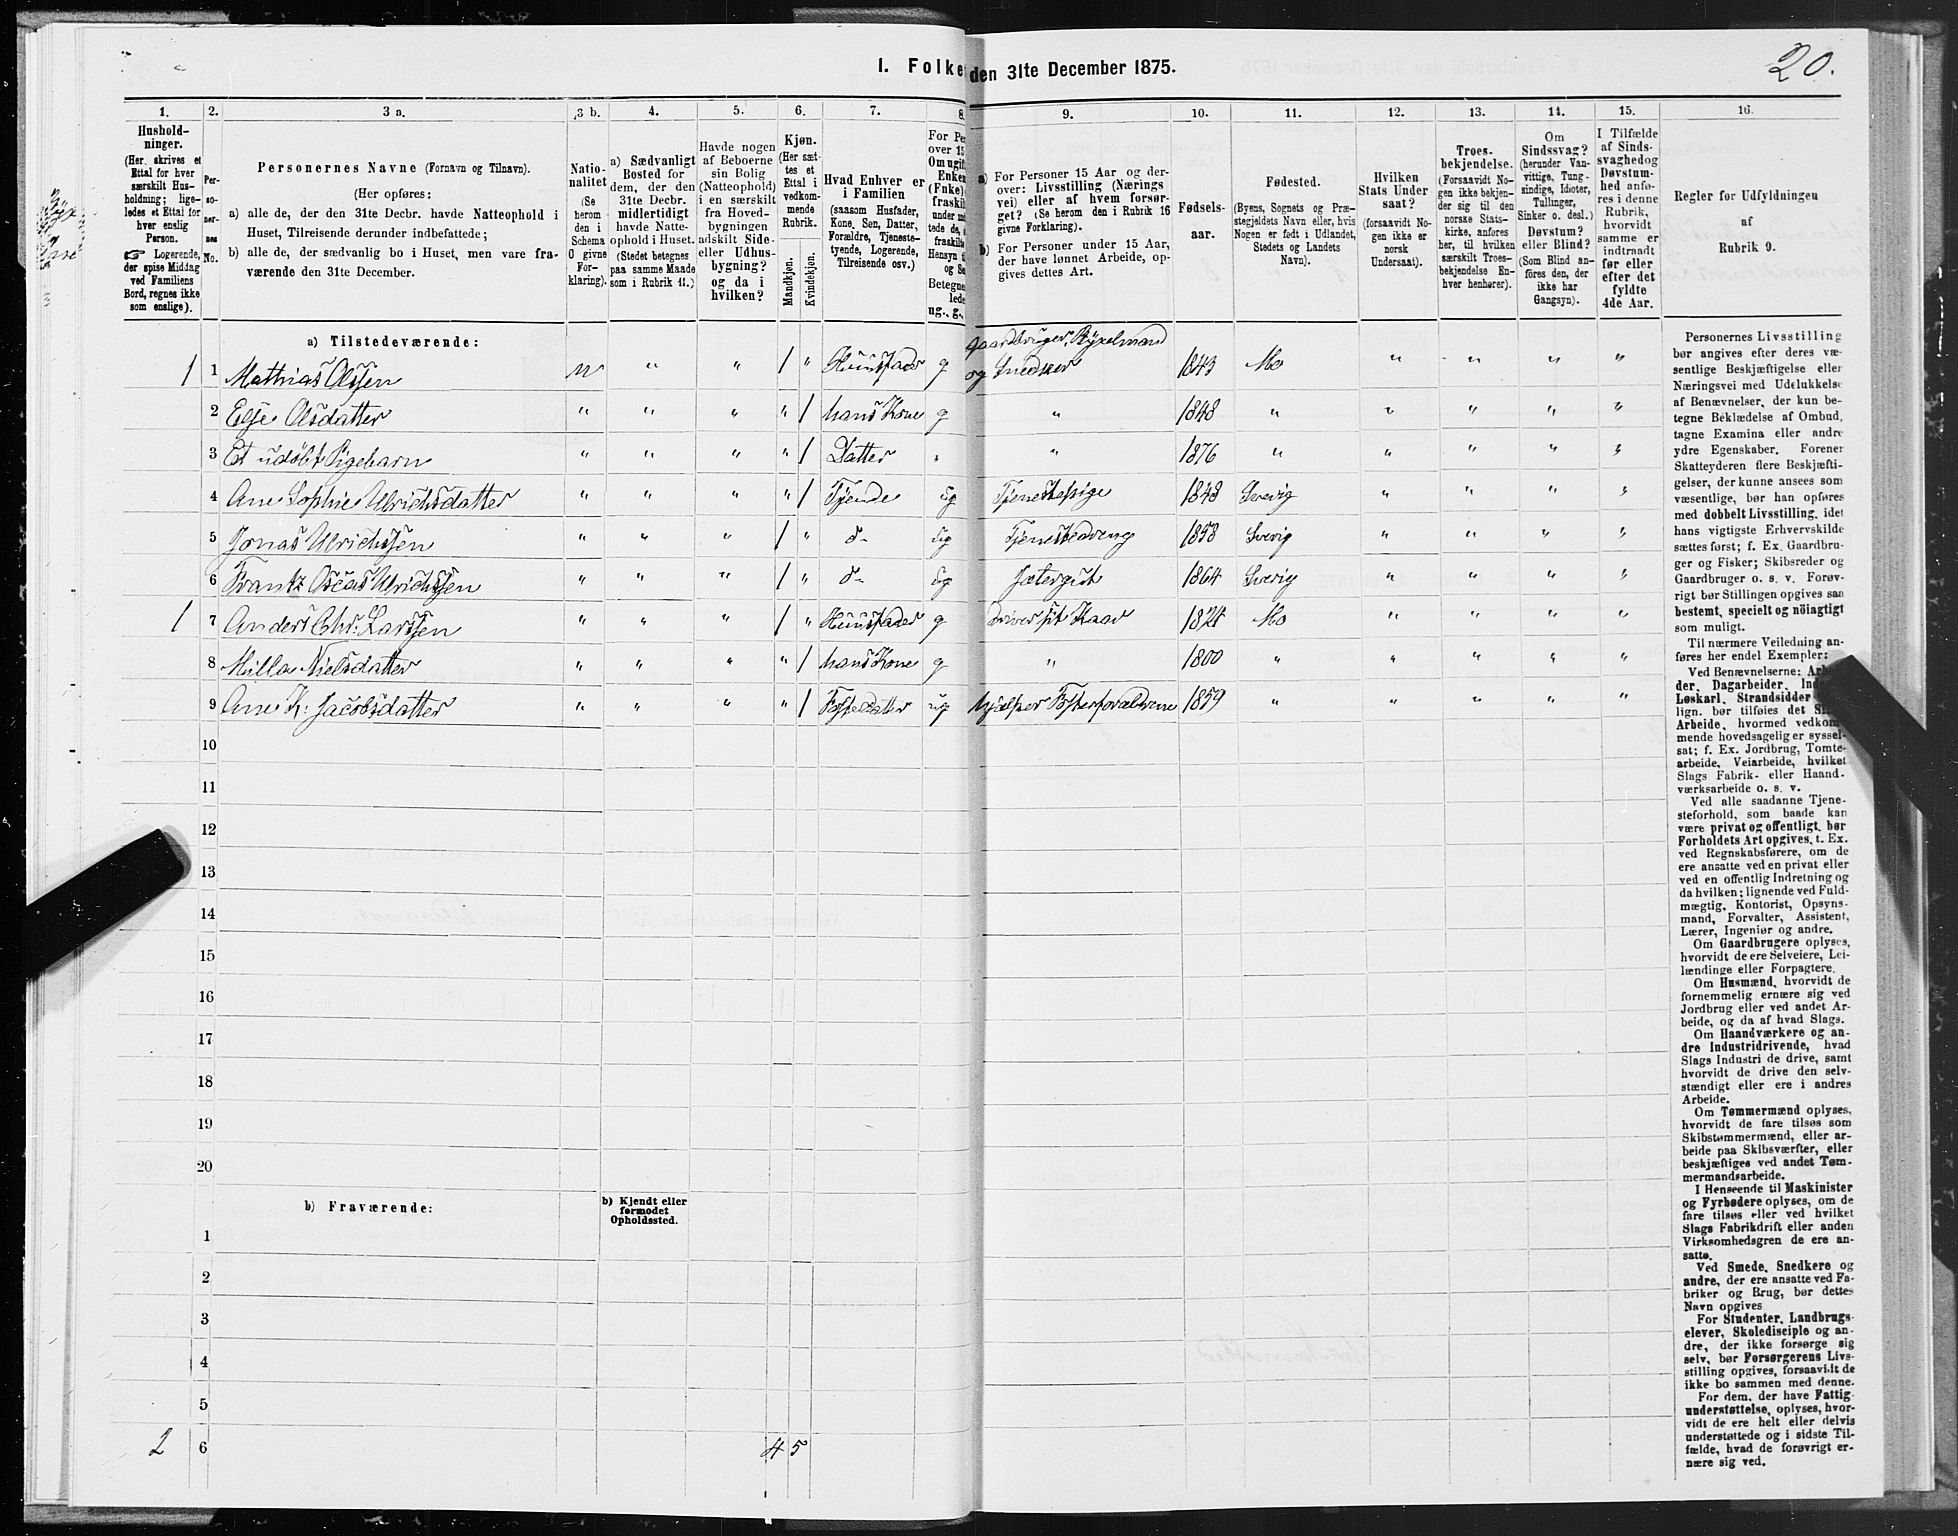 20.
I. Folke den 31te December 1875.
1. 2. 3 a. 3 b. 4. 5. 6. 7. 8. 9. 10. 11. 12. 13. 14. 15. 16.
Hushold-
ninger.
(Her skrives et
Ettal for hver
særskilt Hus-
holdning; lige-
ledes et Ettal for
hver enslig
Person.
☞ Logerende,
der spise Middag
ved Familiens
Bord, regnes ikke
som enslige).
Per-
so-
ner-
nes
No.
Personernes Navne (Fornavn og Tilnavn).
(Her opføres:
a) alle de, der den 31te Decbr. havde Natteophold i
Huset, Tilreisende derunder indbefattede;
b) alle de, der sædvanlig bo i Huset, men vare fra-
værende den 31te December.
Natio-
nalitet
(Se
herom
den i
Schema
O givne
For-
klaring).
a) Sædvanligt
Bosted for
dem, der den
31te Decbr.
midlertidigt
havde Natte-
ophold i Huset.
(Stedet betegnes
paa samme Maade
som i Rubrik 11.)
Havde nogen
af Beboerne
sin Bolig
(Natteophold)
i en særskilt
fra Hoved-
bygningen
adskilt Side-
eller Udhus-
bygning?
og da i
hvilken?
Kjøn.
(Her sæt-
tes et
Ettal i
vedkom-
mende
Rubrik.
Mandkjøn.
Kvindekjøn.
Hvad Enhver er
i Familien
(saasom Husfader,
Kone, Søn, Datter,
Forældre, Tjeneste-
tyende, Logerende,
Tilreisende osv.)
For Per
over 15
Om ugift
Enke
(Fnke)
fraskil
under me
tede de,
fraskilte
Hensyn t
og Se
Betegne
lede
ug., g.,
a) For Personer 15 Aar og der-
over: Livsstilling (Nærings
vei) eller af hvem forsør-
get? (Se herom den i Rubrik 16
givne Forklaring).
b) For Personer under 15 Aar,
der have lønnet Arbeide, op-
gives dettes Art.
Fødsels-
aar.
Fødested.
(Byens, Sognets og Præ-
stegjeldets Navn eller, hvis
Nogen er født i Udlandet,
Stedets og Landets
Navn).
Hvilken
Stats Under
saat?
(forsaavidt No-
gen ikke er
norsk
Undersaat).
Troes-
bekjendelse.
(Forsaavidt No-
gen ikke bekjen-
der sig til den
norske Stats-
kirke, anføres
her, til hvilken
særskilt Troes-
bekjendelse En-
hver henhører).
Om
Sindssvag?
(herunder Van-
vittige, Tung-
sindige, Idioter,
Tullinger,
Sinker o. desl.)
Døvstum?
eller Blind?
(Som Blind an-
føres den, der
ikke har
Gangsyn).
I Tilfælde
af Sinds-
svaghedog
Døvstum-
hed anfø-
res i denne
Rubrik,
hvorvidt
samme er
indtraadt
før eller
efter det
fyldte
4de Aar.
Regler for Udfyldningen
af
Rubrik 9.
a) Tilstedeværende:
1 1 Mathias Olssen n " " 1 " Huusfader g Gaardbruger, og Snedker 1843 Mo " " " "
2 Else Olsdatter " " " " 1 hans Kone g " 1848 " " " " "
3 Et udøbt Pigebarn " " " " 1 Datter " " 1876 " " " " "
4 Ane Sophie Ulrichsdatter " " " " 1 Tjende ug Tjenestepige 1848 Sverig " " " "
5 Jonas Ulrichssen " " " 1 " d- ug Tjenestedreng 1858 Sverig " " " "
6 Frantz Oscas Ulrichssen " " " 1 " d- ug Jætergut 1864 Sverig " " " "
1 7 Anders Chr. Larssen " " " 1 " Huusfader g 1824 Mo " " " "
8 Milla Nielsdatter " " " " 1 hans Kone g " 1800 " " " " "
9 Ane K: Jacobsdatter " " " " 1 Fosterdatter ug hjælper Fosterforældrene 1859 " " " " "
10
11
12
13
14
15
16
17
18
19
20
b) Fraværende:
b) Kjendt eller
formodet
Opholdssted.
1
2
3
4
5
2 6 4 5
Personernes Livsstilling
bør angives efter deres væ-
sentlige Beskjæftigelse eller
Næringsvei med Udelukkelse
af Benævnelser, der kun be-
tegne Beklædelse af Ombud,
tagne Examina eller andre
ydre Egenskaber. Forener
Skatteyderen flere Beskjæfti-
gelser, der kunne ansees som
væsentlige, bør han opføres
med dobbelt Livsstilling, idet
hans vigtigste Erhvervskilde
sættes først; f. Ex. Gaardbru-
ger og Fisker; Skibsreder og
Gaardbruger o. s. v. Forøv-
rigt bør Stillingen opgives saa
bestemt, specielt og nöiagtigt
som muligt.
Til nærmere Veiledning an-
føres her endel Exempler:
Ved Benævnelserne:
der, Dagarbeider,
Løskarl, Strandsidder
lign. bør tilføies det
Arbeide, hvormed vedkom-
mende hovedsagelig er syssel-
sat; f. Ex. Jordbrug, Tomte-
arbeide, Veiarbeide, hvilket
Slags Fabrik- eller Haand-
værksarbeide o. s. v.
Ved alle saadanne Tjene-
steforhold, som baade kan
være privat og offentligt, bør
Forholdets Art opgives, t. Ex.
ved Regnskabsførere, om de
ere ansatte ved en privat eller
ved en offentlig Indretning og
da hvilken; lignende ved Fuld-
mægtig, Kontorist, Opsyns-
mand, Forvalter, Assistent,
Lærer, Ingeniør og andre.
Om Gaardbrugere oplyses,
hvorvidt de ere Selveiere, Lei-
lændinge eller Forpagtere.
Om Husmænd, hvorvidt de
fornemmelig ernære sig ved
Jordbrug eller ved andet Ar-
beide, og da af hvad Slags.
Om Haandværkere og an-
dre Industridrivende, hvad
Slags Industri de drive, samt
hvorvidt de drive den selv-
stændigt eller ere i andres
Arbeide.
Om Tømmermænd oplyses,
hvorvidt de fare tilsøs som
Skibstømmermænd, eller ar-
beide paa Skibsværfter, eller
beskjæftiges ved andet Tøm-
mermandsarbeide.
I Henseende til Maskinister
og Fyrbødere oplyses, om de
fare tilsøs eller ved hvilket
Slags Fabrikdrift eller anden
Virksomhedsgren de ere an-
satte.
Ved Smede, Snedkere og
andre, der ere ansatte ved Fa-
briker og Brug, bør dettes
Navn opgives
For Studenter, Landbrugs-
elever, Skoledisciple og an-
dre, der ikke forsørge sig
selv, bør Forsørgerens Livs-
stilling opgives, forsaavidt de
ikke bo sammen med denne.
For dem, der have Fattig-
understøttelse, oplyses, hvor-
vidt de ere helt eller delvis
understøttede og i sidste Til-
fælde, hvad de forøvrigt er-
nære sig ved.